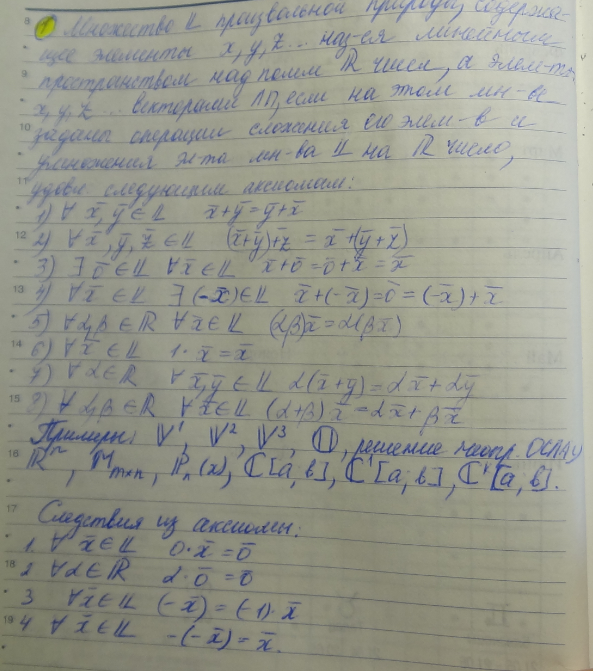 8
1 Множество 𝕃 произвольной природы, содержа-
щее элементы x, y, z... наз-ся линейным
9
пространством над полем ℝ чисел, а элем-ты
x, y, z ... векторами ЛП, если на этом мн-ве
10
заданы операции сложения его элем-в и
умножения эл-та мн-ва 𝕃 на ℝ число,
11
удовл. следующим аксиомам:
1) ∀ x̄, ȳ ∈ 𝕃 x̄+ȳ=ȳ+x̄
12
2) ∀ x̄, ȳ, z̄ ∈ 𝕃 (x̄+ȳ)+z = x̄+(ȳ+z̄)
3) ∃ ō ∈ 𝕃 ∀ x̄ ∈ 𝕃 x̄+ō=ō+x̄=x̄
13
4) ∀ x̄ ∈ 𝕃 ∃ (-x̄) ∈ 𝕃 x̄+(-x̄)=ō=(-x̄)+x̄
5) ∀ α,β ∈ ℝ ∀ x̄ ∈ 𝕃 (αβ)x̄=α(βx̄)
14
6) ∀ x̄ ∈ 𝕃 1·x̄=x̄
7) ∀ α ∈ ℝ ∀ x̄,ȳ ∈ 𝕃 α(x̄+y)=αx̄+αȳ
15
8) ∀ α,β ∈ ℝ ∀ x̄ ∈ 𝕃 (α+β)x̄=αx̄+βx̄
Примеры: 𝕍¹, 𝕍², 𝕍³, решение неопр. ОСЛАУ
16
ℝⁿ, M_{m×n}, ℙₙ(x), ℂ[a,в], ℂ¹[a;в], ℂ'[a,в].
17
Следствия из аксиомы:
1. ∀ x̄ ∈ 𝕃 0·x̄=ō
18
2 ∀ α ∈ ℝ α·ō=ō
3 ∀ x̄ ∈ 𝕃 (-x̄)=(-1)·x̄
19
4 ∀ x̄ ∈ 𝕃 -(-x̄)=x̄.